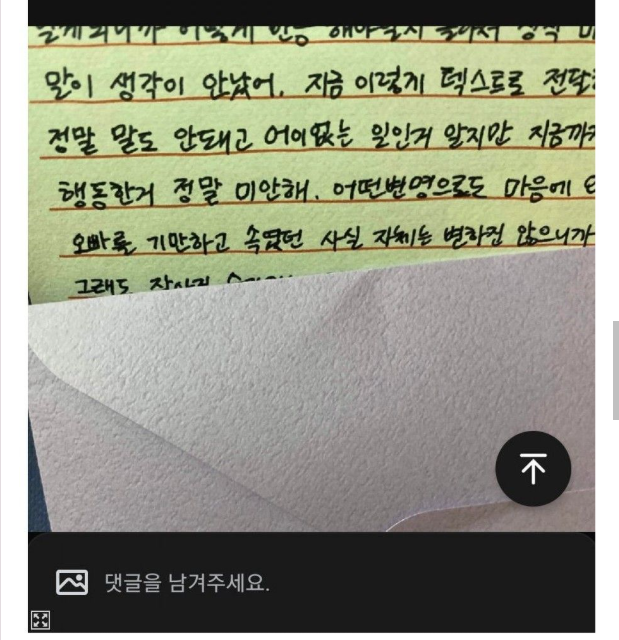 말이 생각이 안났어. 지금 이렇게 텍스트로
정말 말도 안돼고 어이없는 일인거 알지만
행동한거 정말 미안해. 어떤변명으로도 마음에
오빠를 기만하고 속였던 사실 자체는 변하진 않으니까
그래도
댓글을 남겨주세요.